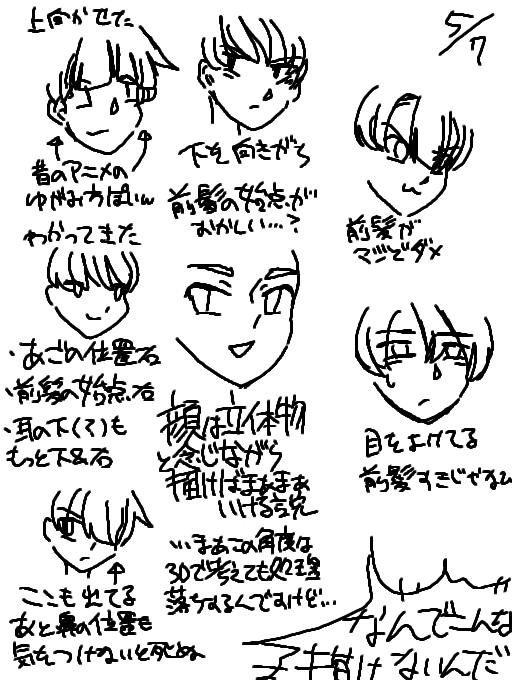 上向かせた
5/7
昔のアニメの
ゆがみっぽいん
わかってきた
下を向きがち
前髪の始点が
おかしい…?
前髪が
マジでダメ
・あごの位置右
・前髪の始点右
・耳の下(?)も
もっと下&右
顔は立体物
と念じながら
描けばまぁまぁ
いける説
目をよけてる
前髪すきじゃない
いまあこの角度は
3Dで考えても処理
落ちするんですけど…
ここも出てる
あと鼻の位置も
気をつけないと死ぬ
なんでーんな
描けないんだ